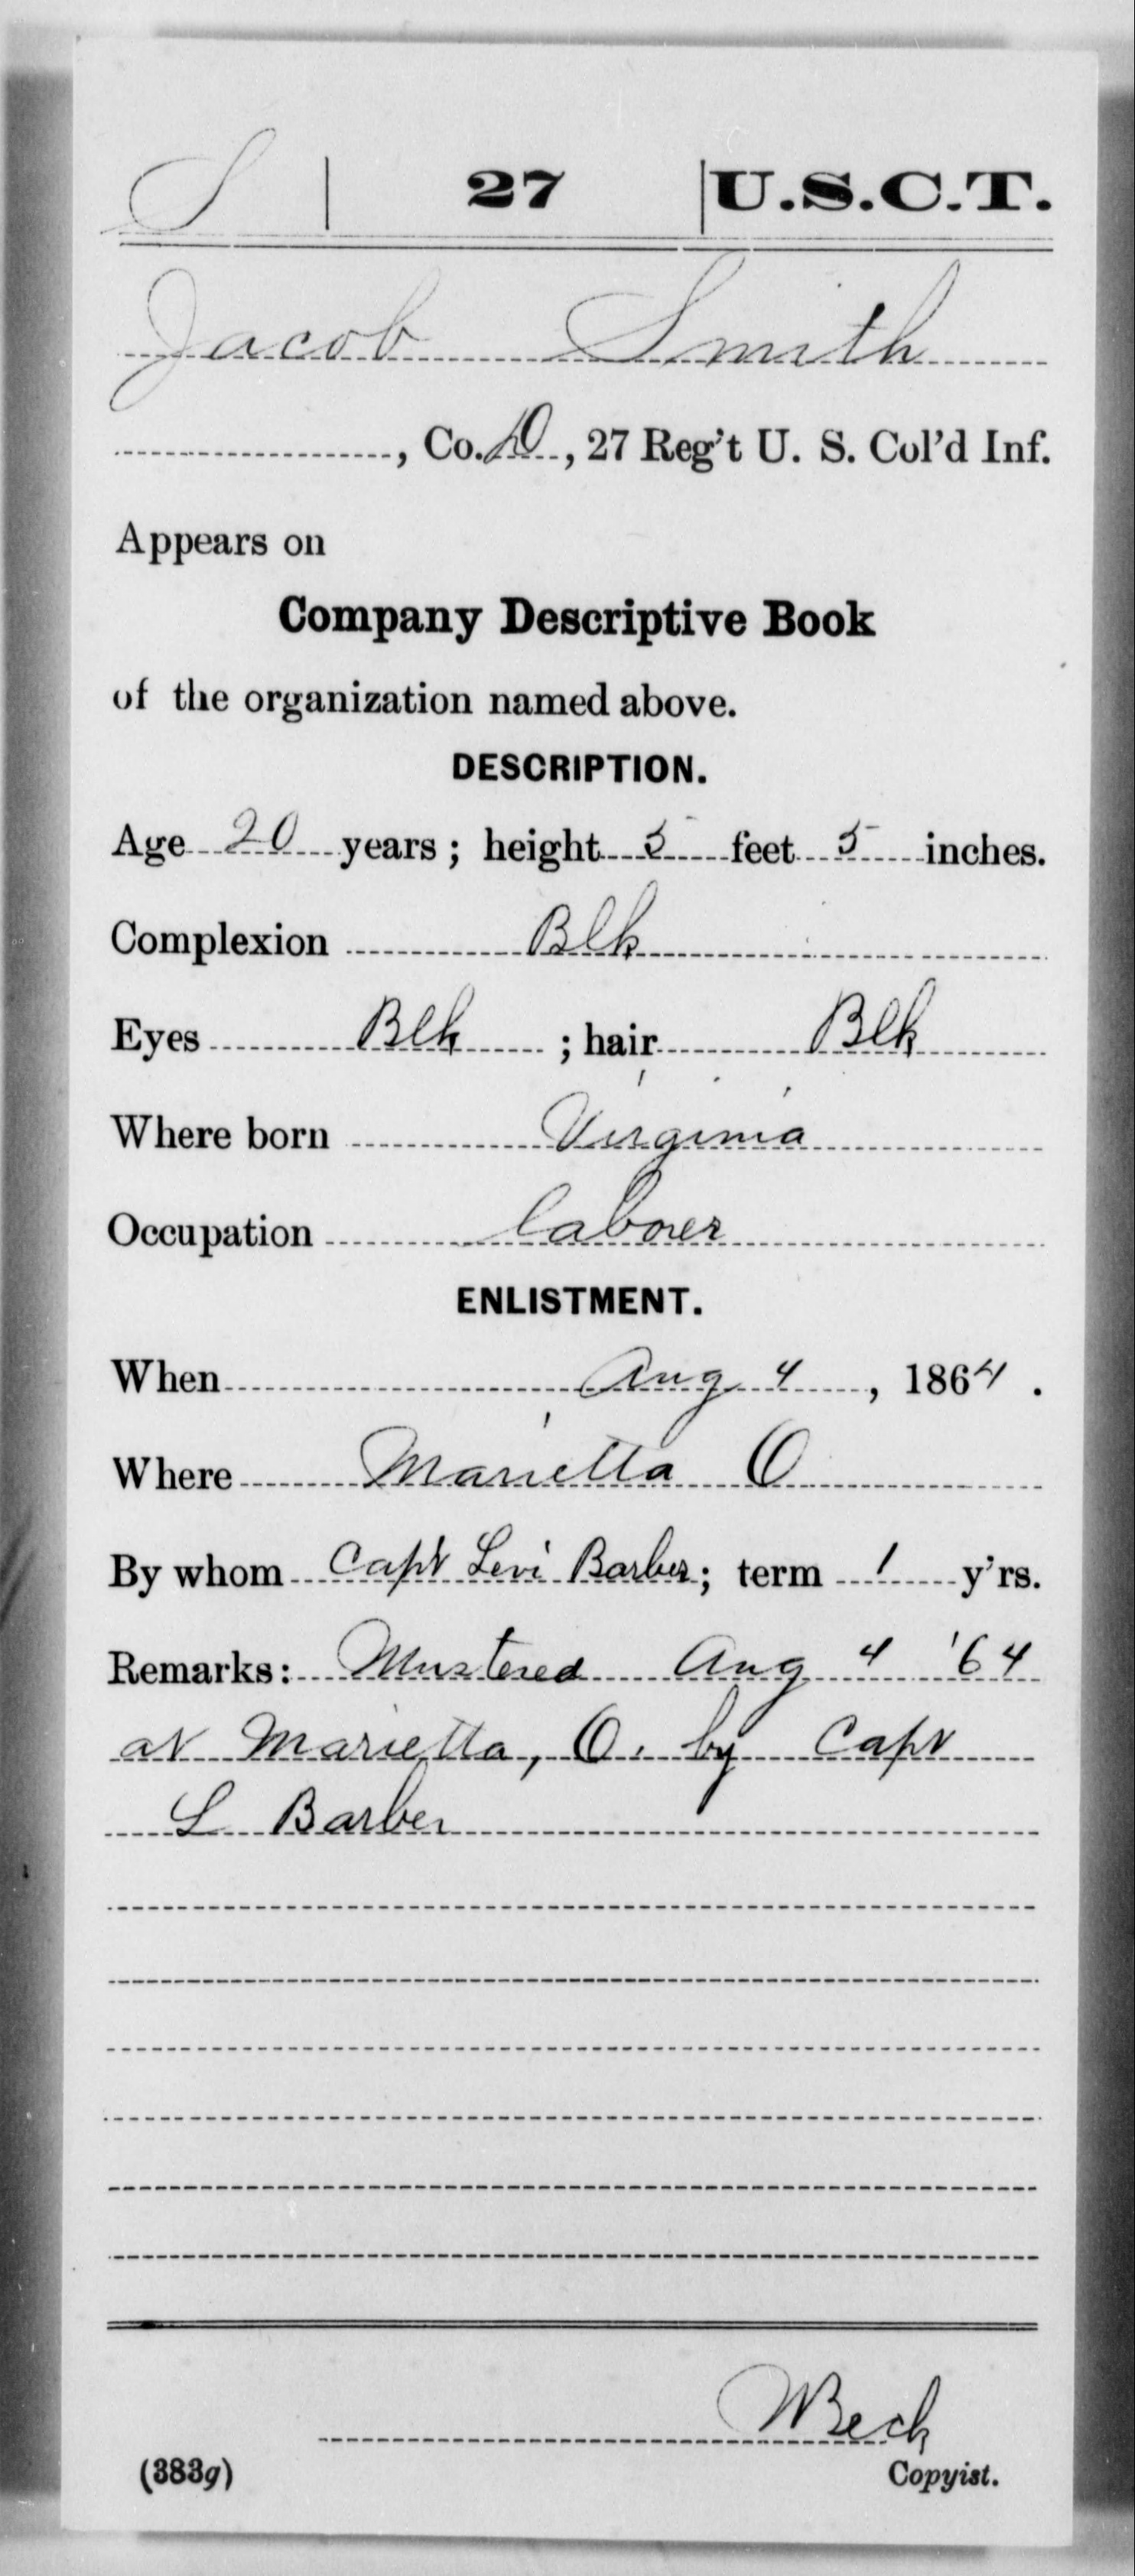 S | 27 | U.S.C.T.
Jacob Smith
, Co. D, 27 Reg't U. S. Col'd Inf.
Appears on
Company Descriptive Book
of the organization named above.
DESCRIPTION.
Age 20 years; height 5 feet 5 inches.
Complexion Blk
Eyes Blk; hair Blk
Where born Virginia
Occupation laborer
ENLISTMENT.
When Aug 4, 1864.
Where Marietta O
By whom Capt Levi Barber; term 1 y'rs.
Remarks: Mustered Aug 4 '64
at Marietta, O. by Capt
L Barber
WBeck
(383g) Copyist.